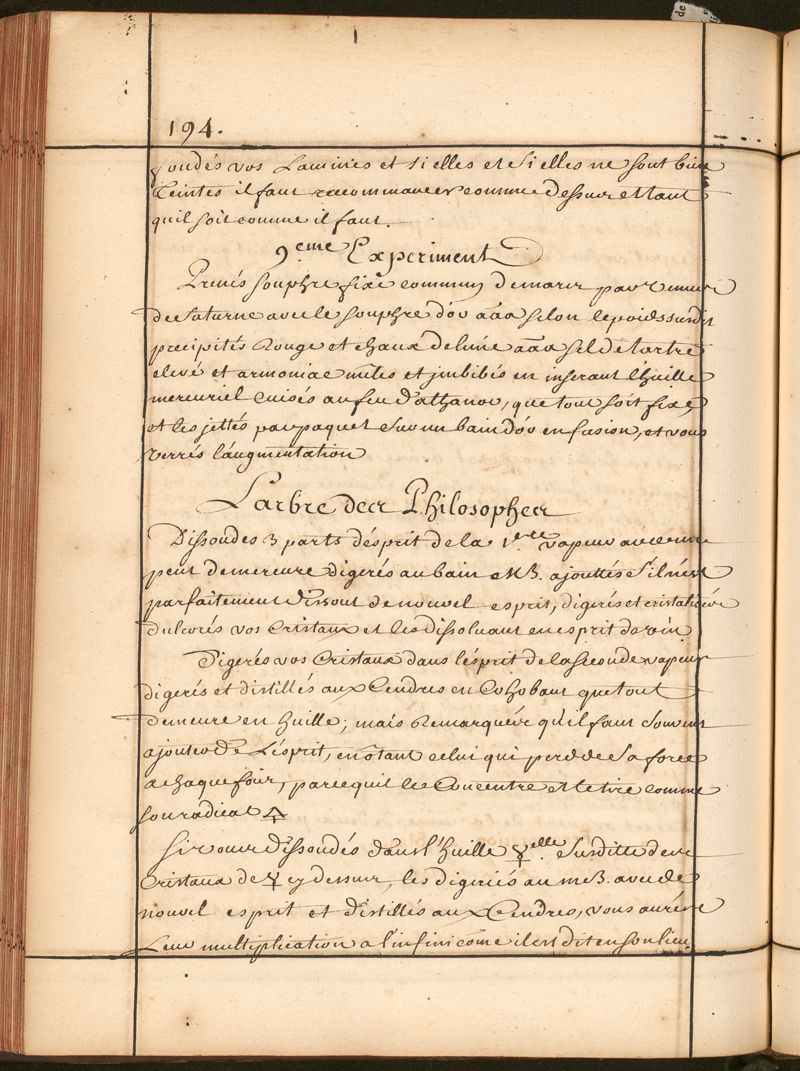 194.
fondés vos Lamines et si elles et si elles ne sont bien
teintes il faut recommancer comme dessus et tant
quil soit comme il faut.
9.eme Experiment
Prenés souphre fixe commun de marir par
de saturne avec le souphre d'or aaa selon le poids susdit
precipités Rouge et chaux de lune aaa sel de tartre
elevé et armoniac meles et jmbibés en inserant l'huille
mercuriel cuisés au feu d'athanor, que tout soit fixe,
et les jettés par paquet sur un bain d'or en fusion, et vous
verrés l'augmentation
L'arbre des Philosophes
Dissoudes 3 parts d'esprit de la 1.ere vapeur avec une
peut de mercure digerés au bain MB. ajouttés s'il n'est
parfaitement dissout de nouvel esprit, digerés et cristalisés
dulcorés vos Cristaux et les dissoluant en esprit de vin
Digerés vos Cristaux dans l'esprit de la seconde vapeur
digerés et distillés aux Cendres en Cohobant que tout
demeure en huille; mais Remarqués qu'il faut souvent
ajouter de L'esprit, en otant celui qui perd de sa force
a chaque fois, parcequil se Concentre et se tire comme
son radical 🜁
Si vous dissoudés dans l'huille ☿elle. susditte des
Cristaux de ☿ cy dessus, les digeriés au m B. avec de
nouvel esprit et distillés aux Cendres, vous aurés
Leur multiplication a l'infini come il est dit en son lieu